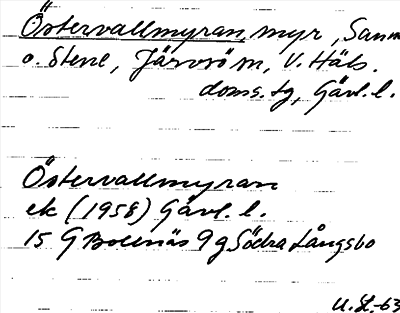 Östervallmyran, myr, Sanna
o. Stene, Järvsö sn, V. Häls.
doms. tg, Gävl. l.
Östervallmyran
ek (1958) Gävl. l.
15 G Bollnäs 9 g Södra Långsbo
U. St. -63